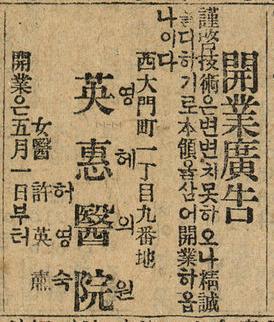 開業廣告
謹啓技術은변변치못하오나精誠
을다하기로本領을삼어開業하옵
나이다
西大門町一丁目九番地
英惠醫院
영혜의원
女醫 許英肅
허영숙
開業은五月一日부터